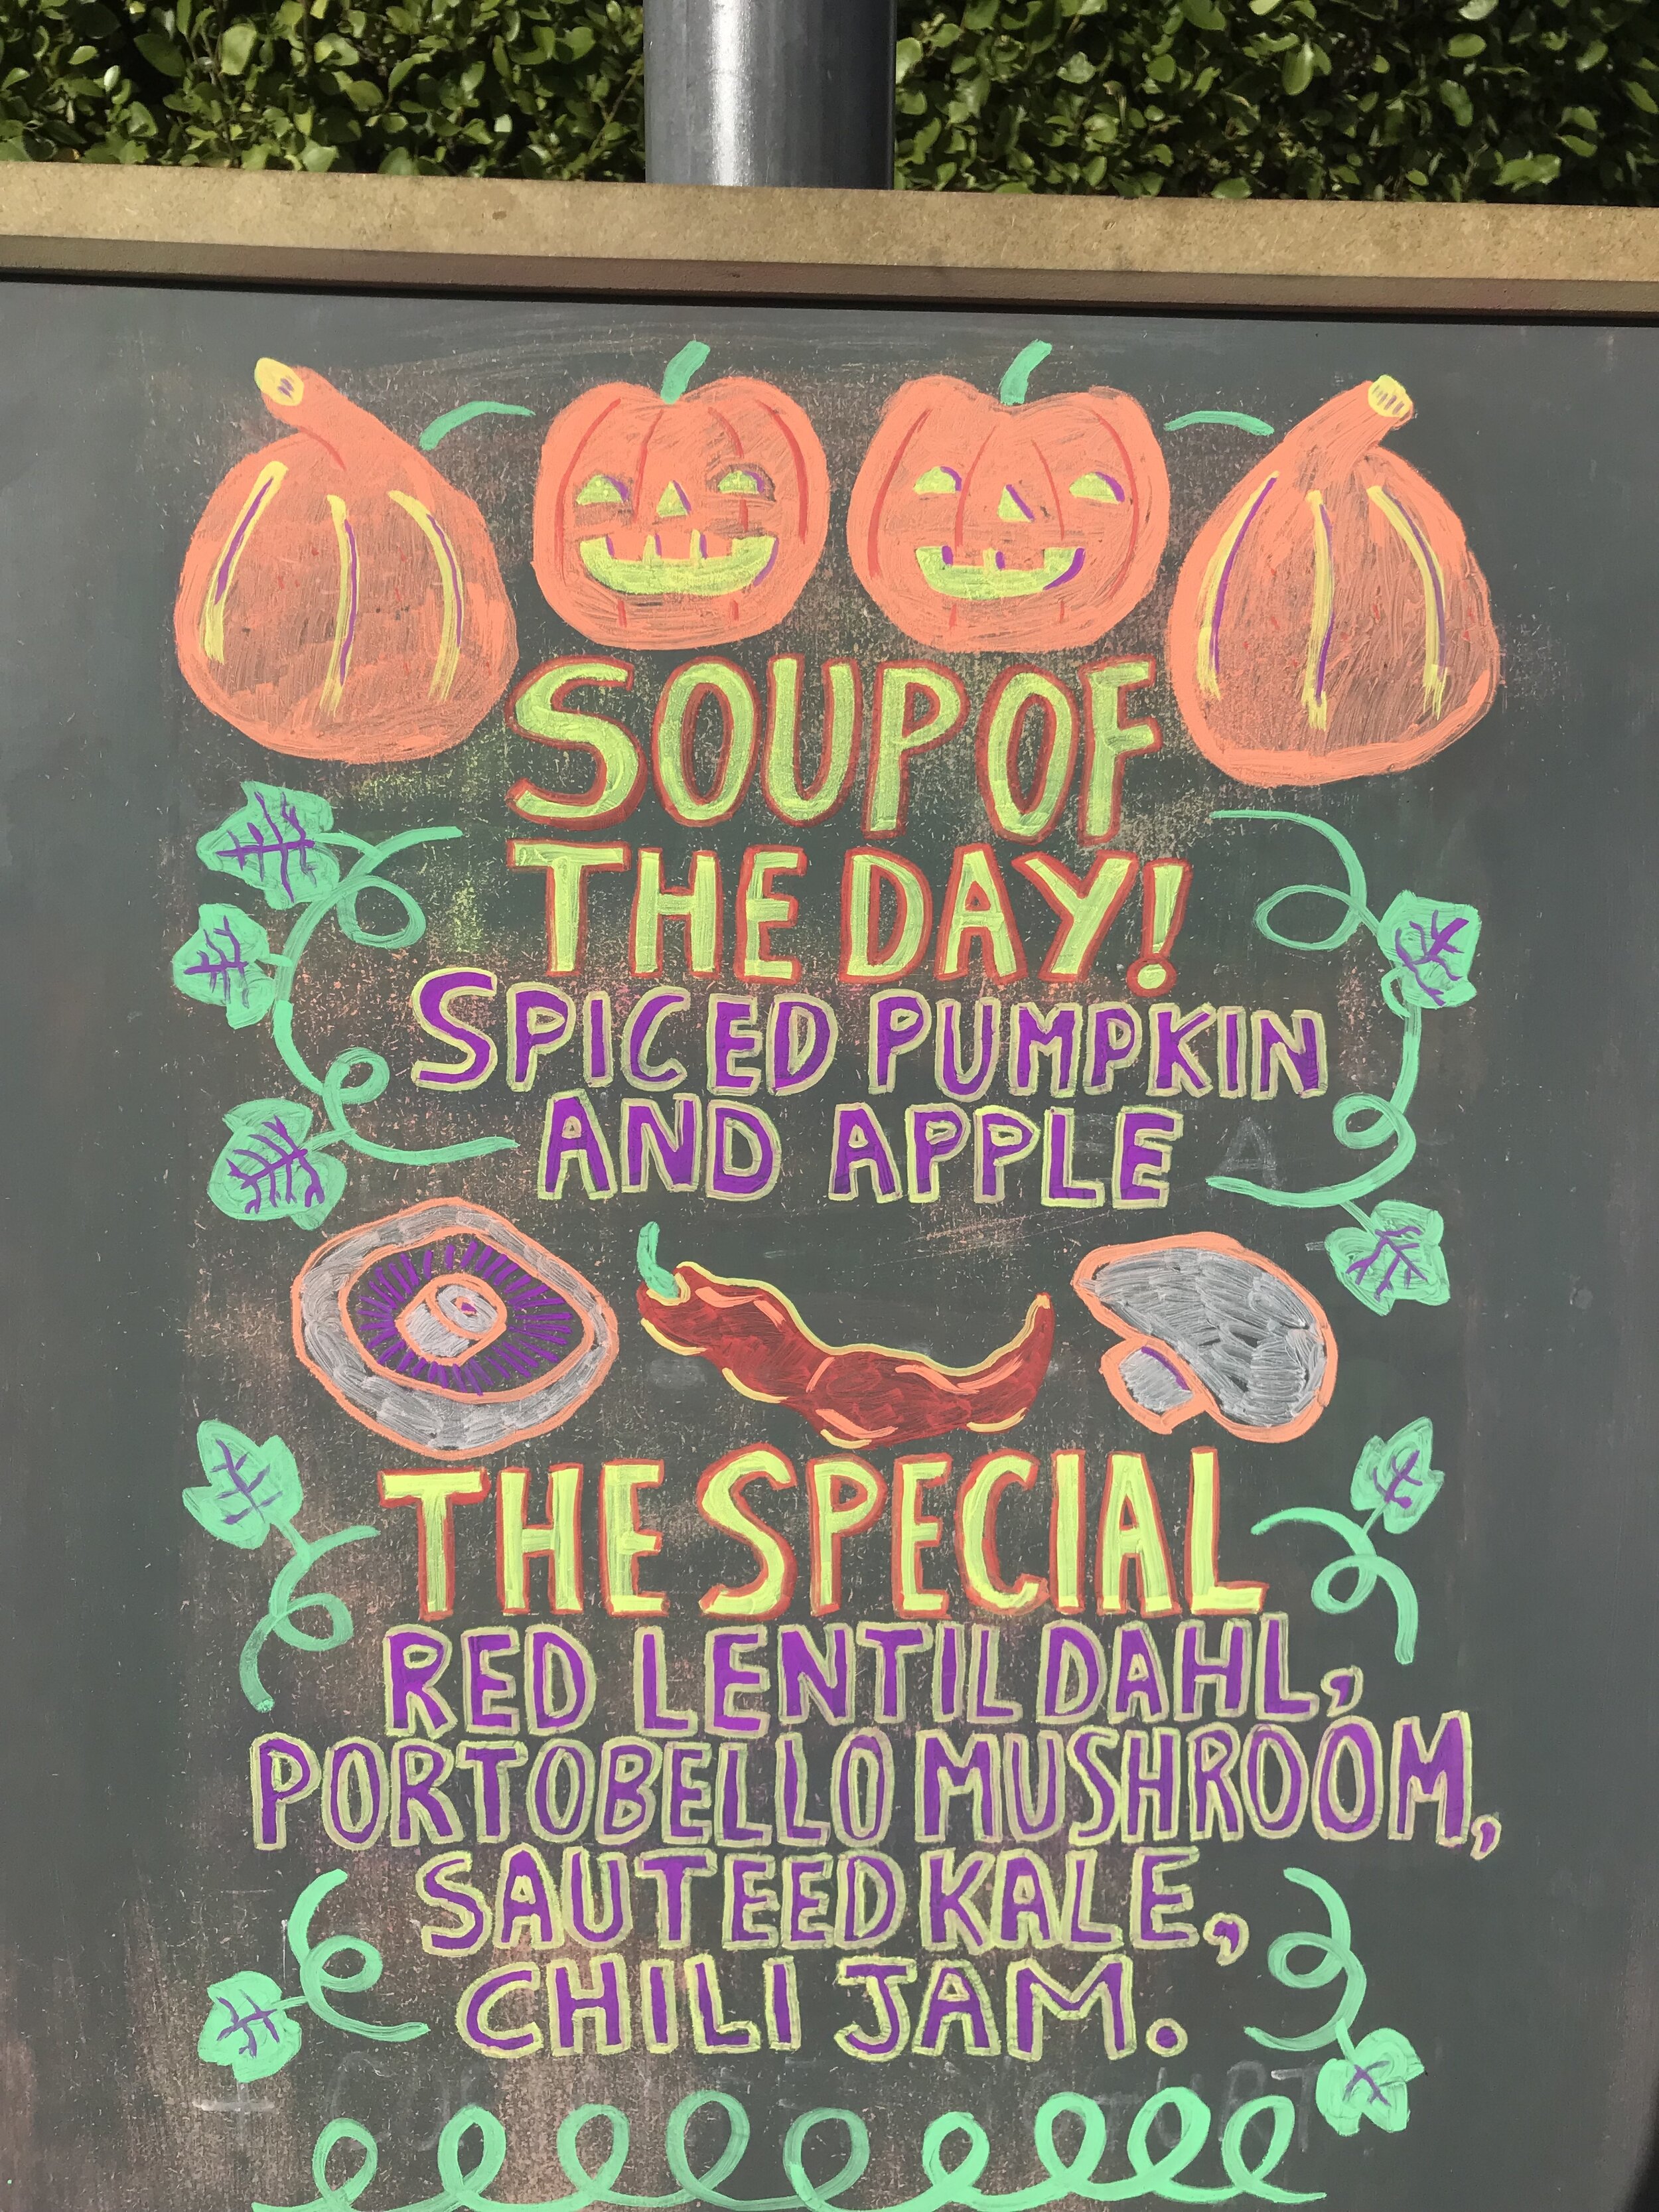 SOUP OF
THE DAY!
SPICED PUMPKIN
AND APPLE
THE SPECIAL
RED LENTIL DAHL,
PORTOBELLO MUSHROOM,
SAUTEED KALE,
CHILI JAM.